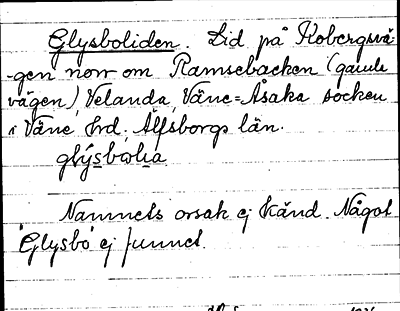 Glysboliden. Lid på Kobergsvä-
gen norr om Ramsebacken (gamle
vägen) Velanda, Väne=Åsaka socken
i Väne hrd. Älfsborgs län.
glýsbωlia
Namnets orsak ej känd. Något
'Glysbo' ej funnet.